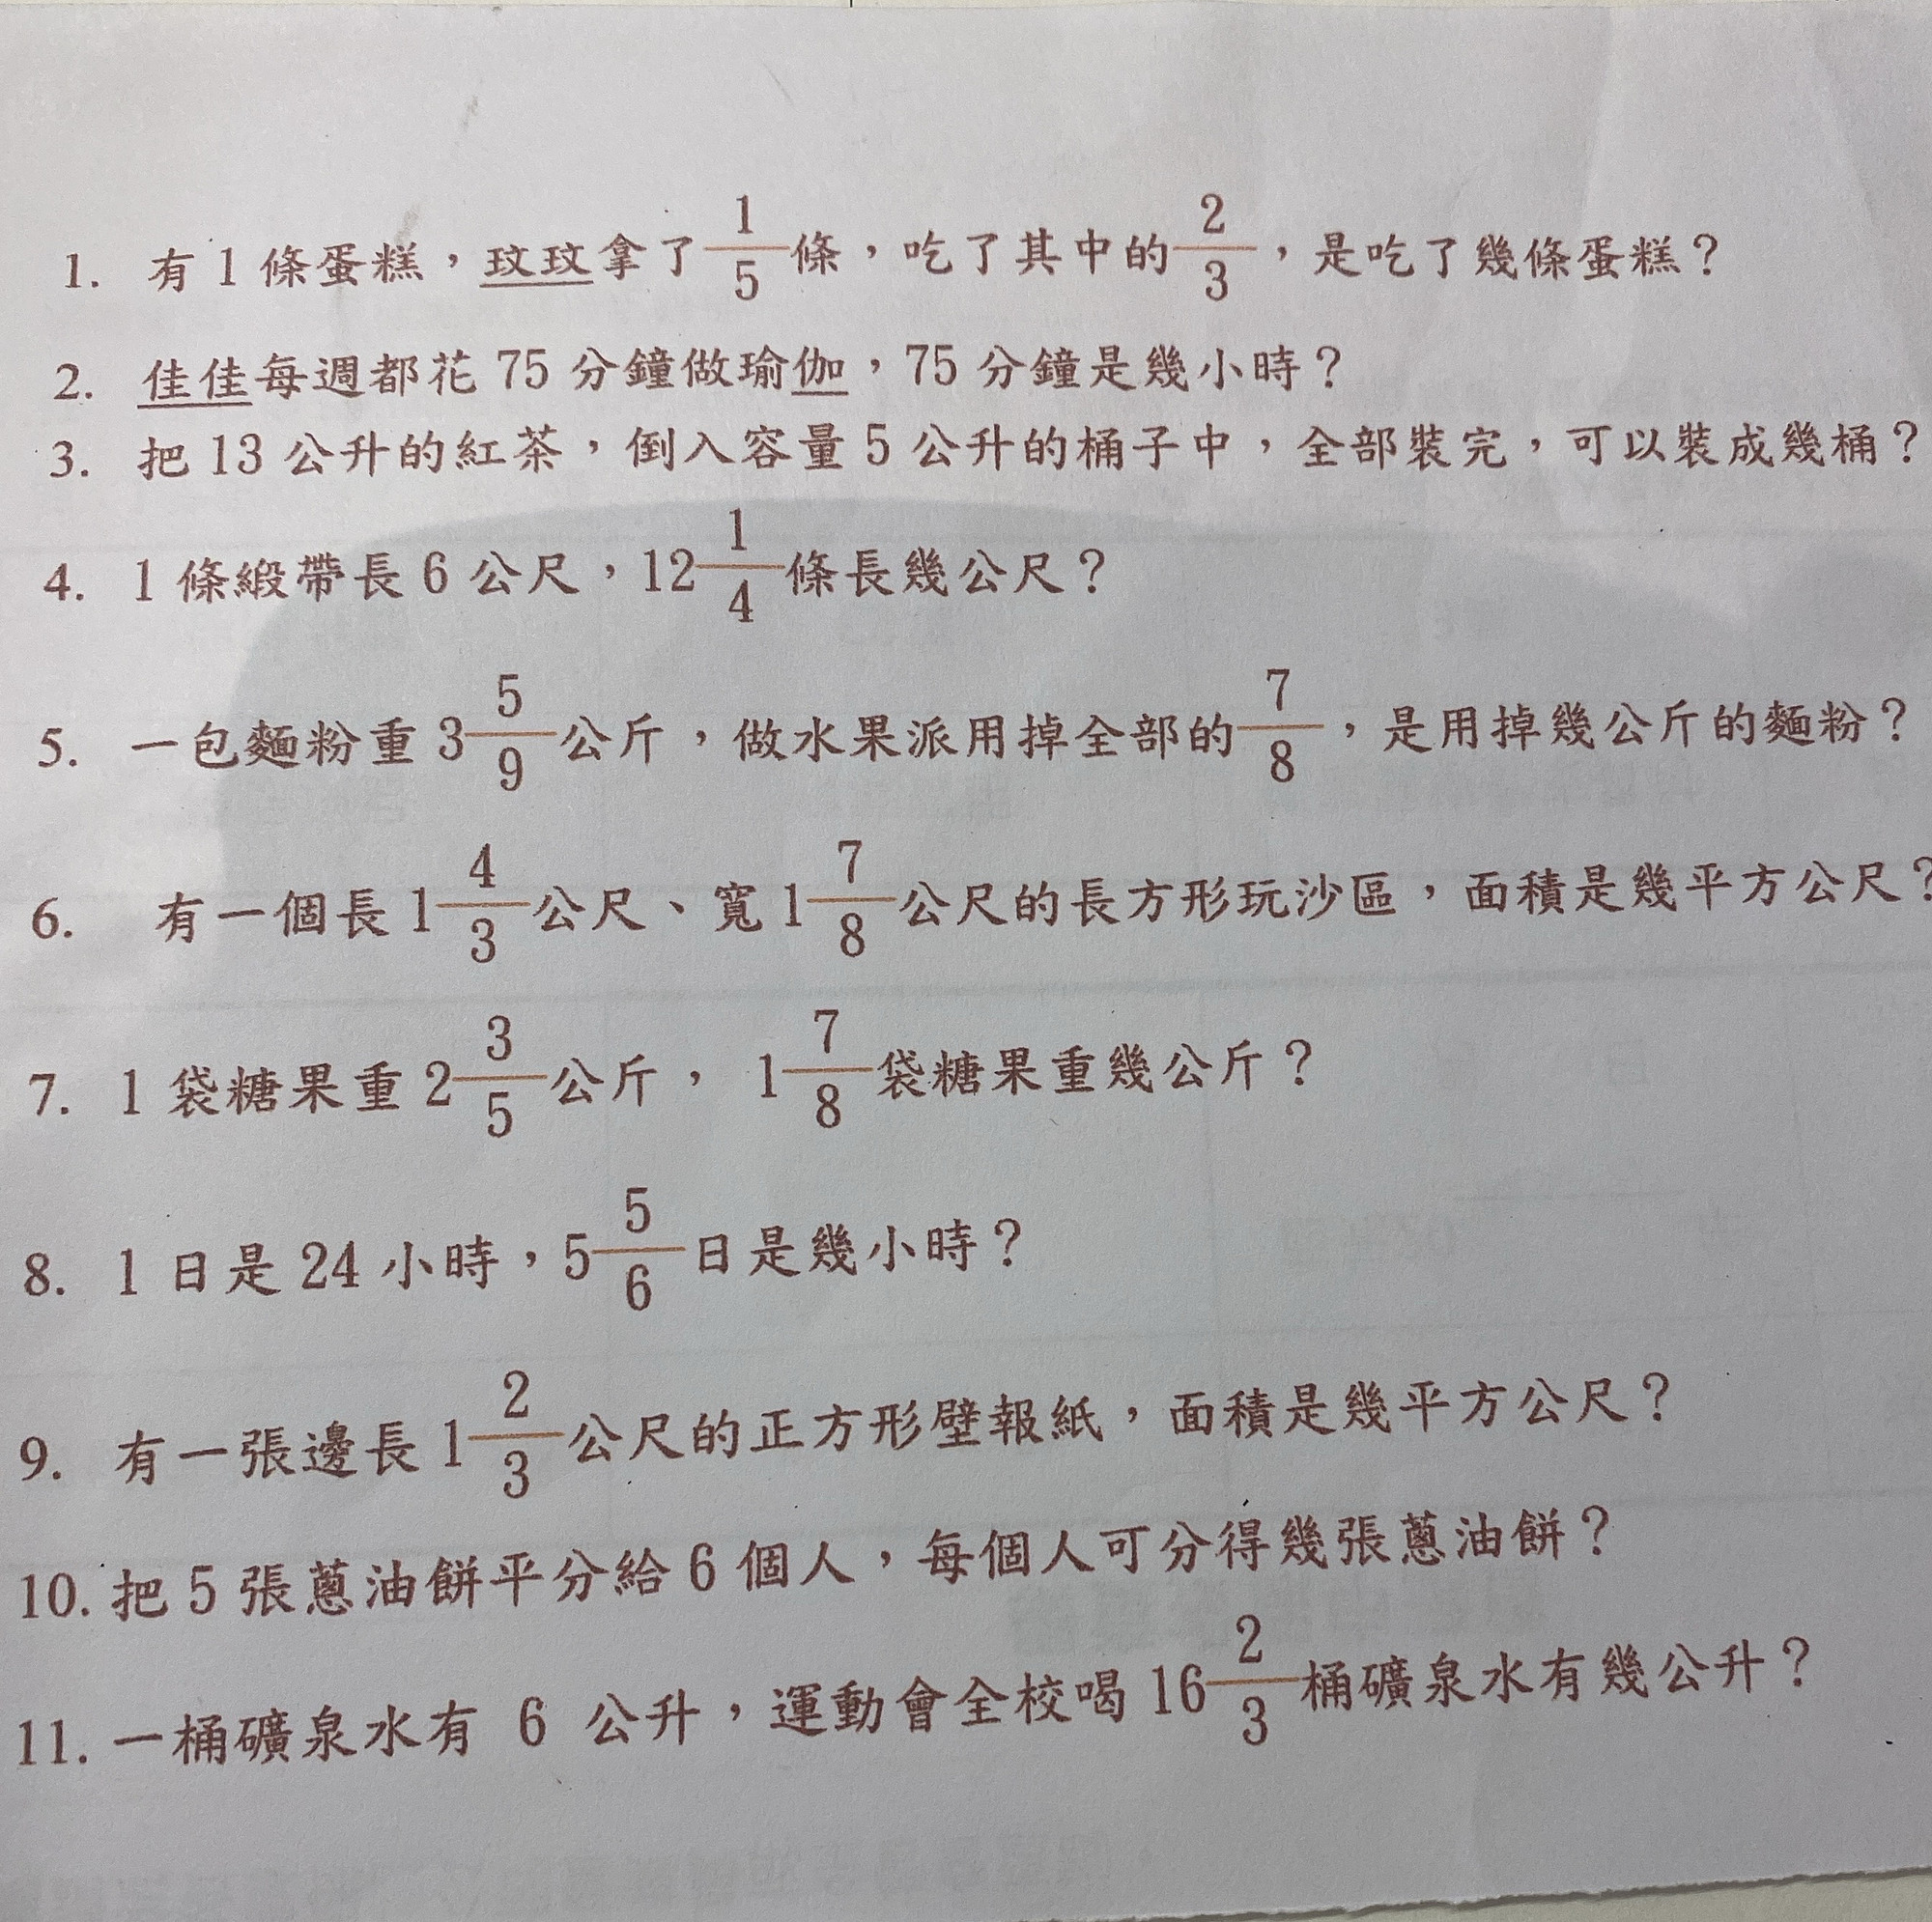 1. 有1條蛋糕，玟玟拿了1/5條，吃了其中的2/3，是吃了幾條蛋糕？
2. 佳佳每週都花75分鐘做瑜伽，75分鐘是幾小時？
3. 把13公升的紅茶，倒入容量5公升的桶子中，全部裝完，可以裝成幾桶？
4. 1條緞帶長6公尺，12 1/4條長幾公尺？
5. 一包麵粉重3 5/9公斤，做水果派用掉全部的7/8，是用掉幾公斤的麵粉？
6. 有一個長1 4/3公尺、寬1 7/8公尺的長方形玩沙區，面積是幾平方公尺？
7. 1袋糖果重2 3/5公斤，1 7/8袋糖果重幾公斤？
8. 1日是24小時，5 5/6日是幾小時？
9. 有一張邊長1 2/3公尺的正方形壁報紙，面積是幾平方公尺？
10. 把5張蔥油餅平分給6個人，每個人可分得幾張蔥油餅？
11. 一桶礦泉水有 6 公升，運動會全校喝16 2/3桶礦泉水有幾公升？